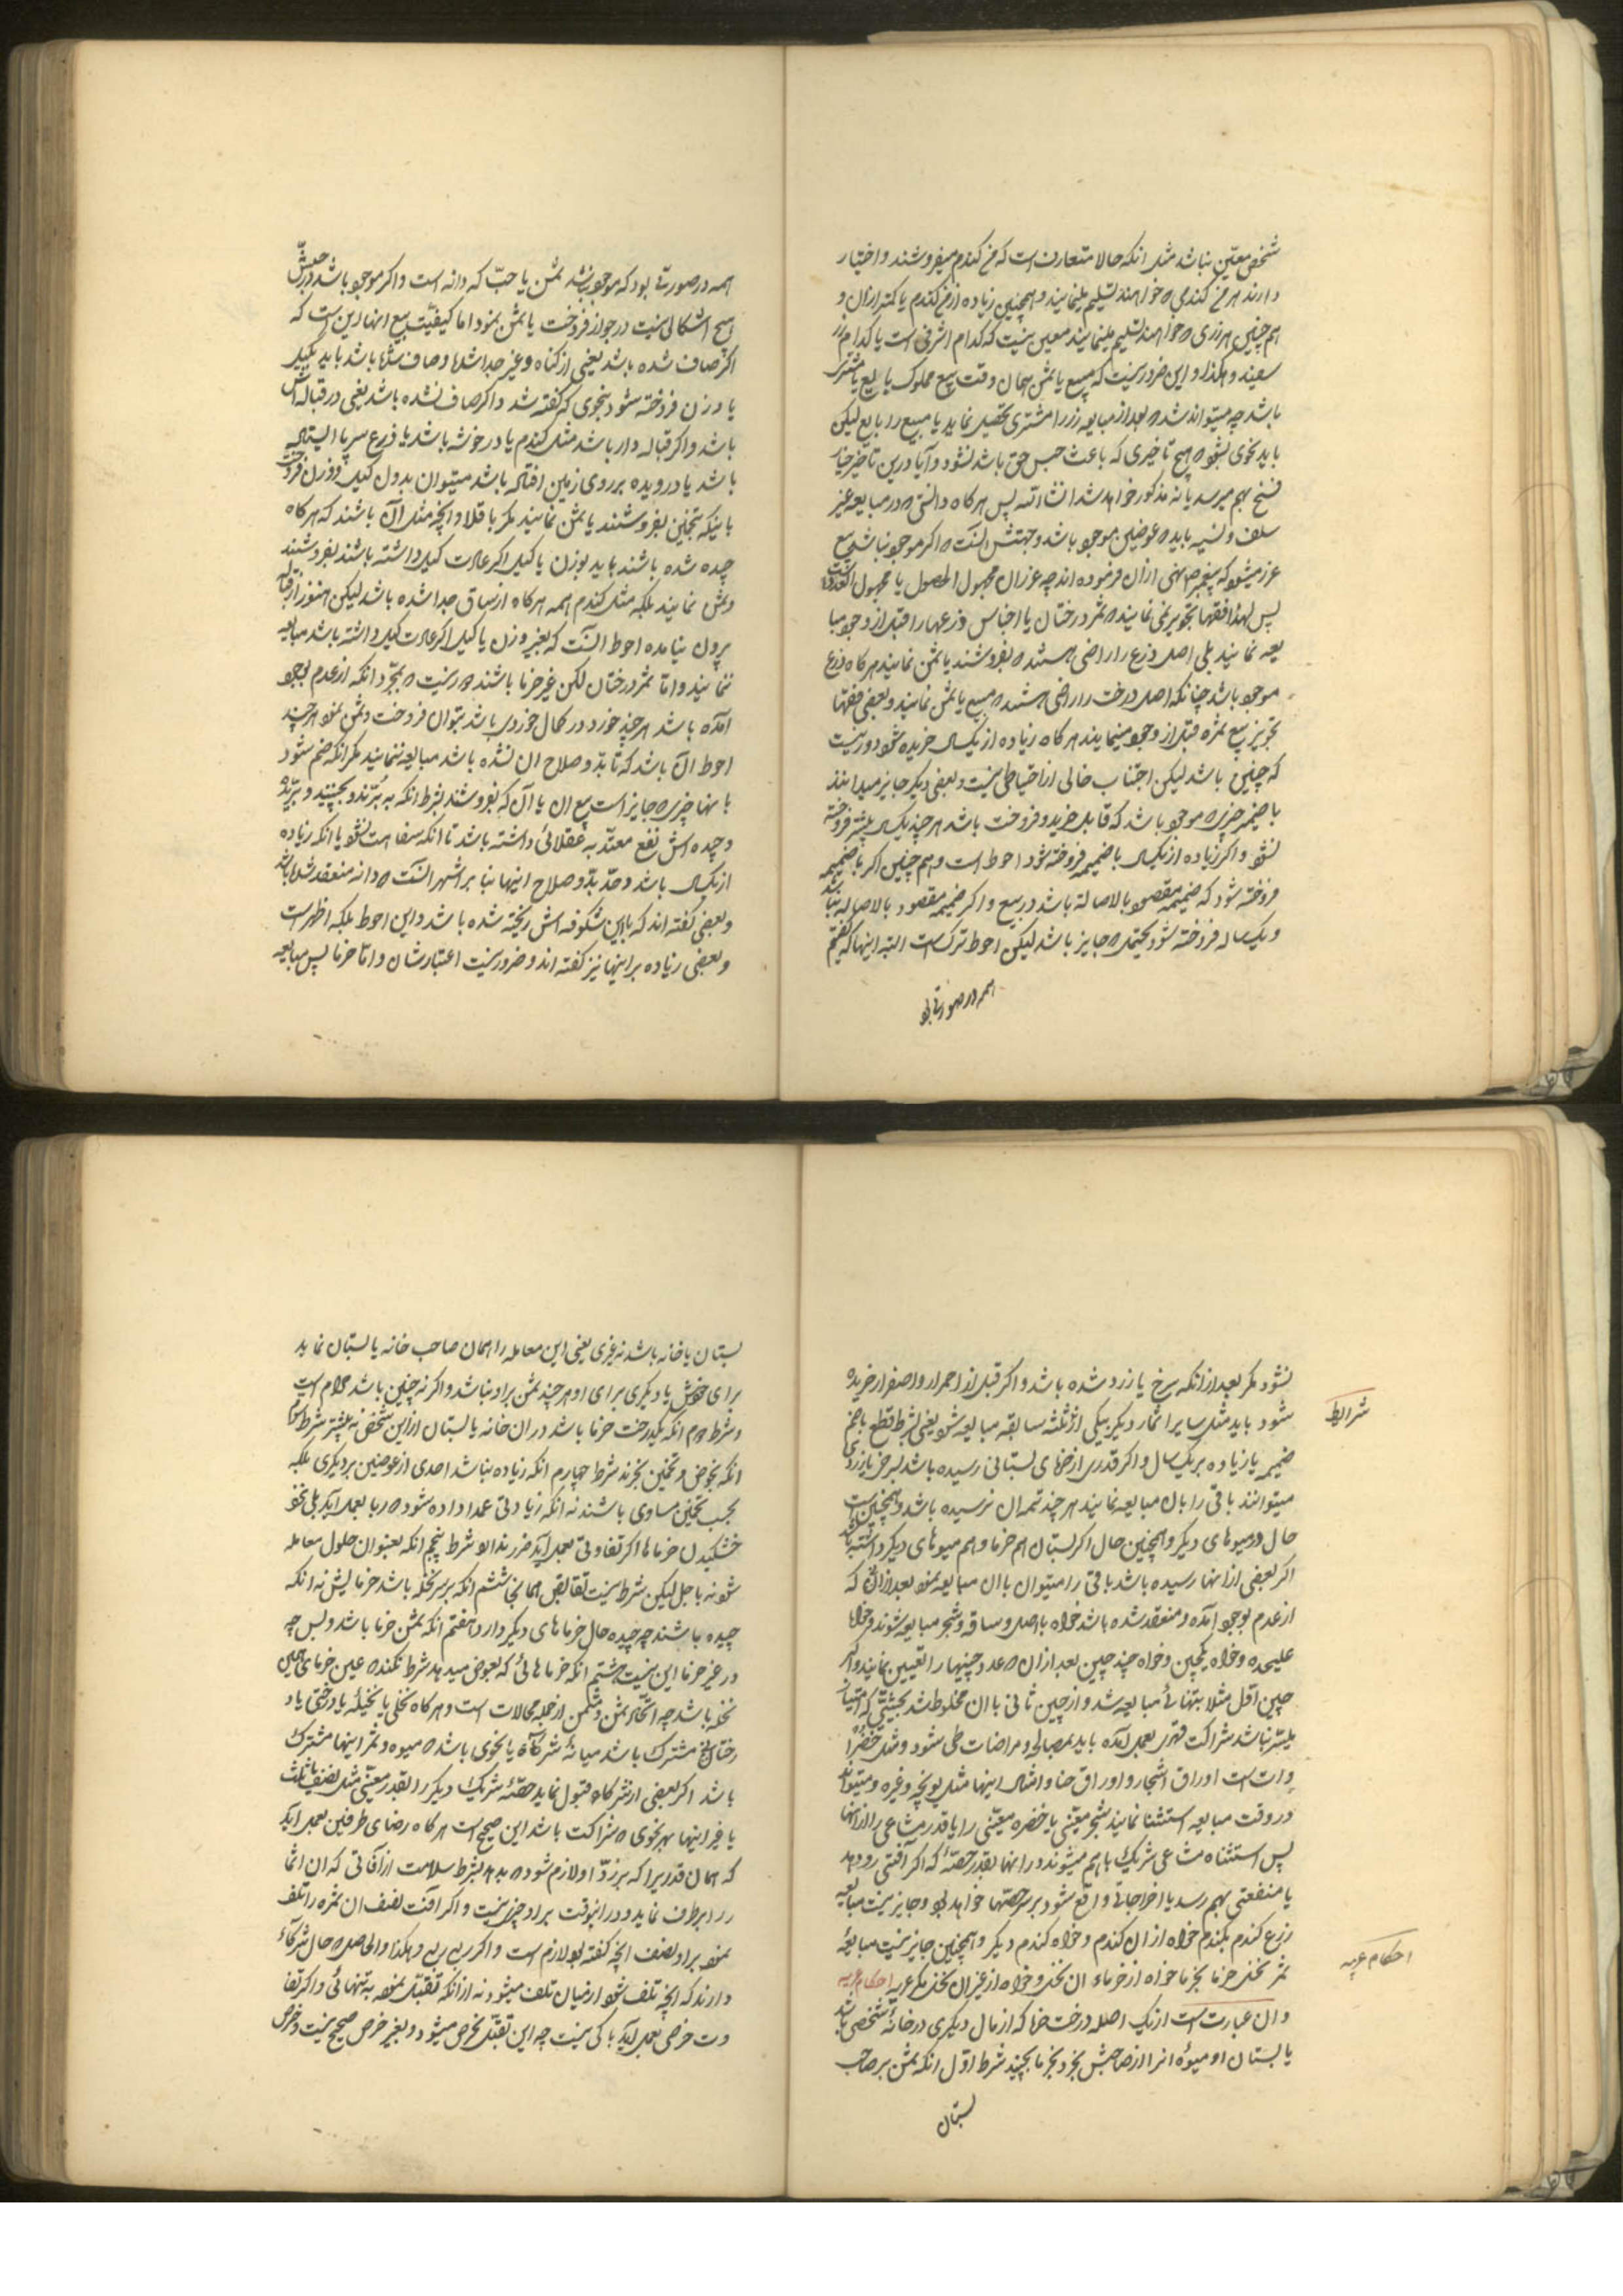 شخص معین نباشد مثل انکه حالا متعارف است که من کندم میفروشند و اختیار
دارند هر من کندمی که خواهند تسلیم مینمایند و همچنین زیاده از من کندم یا کمتر ازان و
هم چنین هر زری که خواهند تسلیم مینمایند معین نیست که کدام اشرفی است یا کدام زر
سفیند و هکذا و این ضرور نیست که مبیع یا ثمن همان وقت بیع مملوک بایع یا مشتری
باشد چه میتواند شد که بعد از مبایعه زر را مشتری تحصیل نماید یا مبیع را بایع لیکن
باید بنحوی نشود که هیچ تاخیری که باعث حبس حق باشد نشود و آیا درین تاخیر خیار
فسخ بهم میرسد یا نه مذکور خواهد شد انشاءالله پس هرکاه دانستی که در مبایعه غیر
سلف و نسیه باید که عوضین موجود باشد و جهتش انست که اکر موجود نباشد بیع
غرر میشود که پیغمبر ص نهی ازان فرموده اند چه غرر ان مجهول الحصول یا مجهول القدر است
پس لهذا فقها تجویز نمی نمایند که ثمر درختان یا اجناس و زرعها را قبل از وجود مبا
یعه نمایند بلی اصل زرع را راضی هستند که بفروشند یا ثمن نمایند هرکاه زرع
موجود باشد چنانکه اصل درخت را راضی هستند که مبیع یا ثمن نمایند و بعضی فقها
تجویز بیع ثمره قبل از وجود مینمایند هرکاه زیاده از یکسال خریده شود و دور نیست
که چنین باشد لیکن اجتناب خالی از احتیاطی نیست و بعضی دیکر جایز میدانند
با ضمیمه چیزی که موجود باشد که قابل خرید و فروخت باشد هر چند یکسال بیشتر فروخته
نشود و اکر زیاده از یکسال با ضمیمه فروخته شود احوط است و هم چنین اکر با ضمیمه
فروخته شود که ضمیمه مقصود بالاصالة باشد در بیع و اکر ضمیمه مقصود بالاصاله نباشد
و یکساله فروخته شود محتمل که جایز باشد لیکن احوط ترکست البته اینها که کفتیم
همه در صورتی بو
همه در صورتی بود که موجود نباشد ثمن یا حبّ که دانه است و اکر موجود باشد
هیچ اشکالی نیست در جواز فروخت یا ثمن نمود اما کیفیّت بیع انها این است که
اکر صاف شده باشد یعنی از کاه و غیره جدا شده و صاف شده باشد باید بکیل
یا وزن فروخته شود بنحوی که کفته شد و اکر صاف نشده باشد یعنی در قباله اش
باشد و اکر قباله دار باشد مثل کندم یا در خوشه باشد یا زرع سرپا ایستاده
باشد یا درویده بر روی زمین افتاده باشد میتوان بدون کیل و وزن فروخت
باینکه تخمین بفروشند یا ثمن نمایند مکر باقلا و انچه مثل آن باشند که هرکاه
چیده شده باشند باید بوزن یا کیل اکر عادت کیل داشته باشند بفروشند
و ثمن نمایند بلکه مثل کندم همه هرکاه از ساق جدا شده باشد لیکن هنوز از قباله
بیرون نیامده احوط انست که بغیر وزن یا کیل اکر عادت کیل داشته باشد مبایعه
ننمایند و امّا ثمر درختان لکن غیر خرما باشند دور نیست که بمجرّد انکه از عدم بوجود
آمده باشد هر چند خورد در کمال خوردی باشد بتوان فروخت و ثمن نمود هر چند
احوط ان باشد که تا بدوّ صلاح ان نشده باشد مبایعه ننمایند مکر انکه ضم شود
با انها چیزی که جایز است بیع ان یا ان که بفروشند بشرط انکه به بُرّند و بچینند و بُرّنده
و چیده اش نفع معتدّ به عقلائی داشته باشد تا انکه سفاهت نشود یا انکه زیاده
از یکسال باشد و حدّ بدوّ صلاح اینها بنا بر اشهر انست که دانه منعقد شده باشد
و بعضی کفته اند که با این شکوفه اش ریخته شده باشد و این احوط بلکه اظهر است
و بعضی زیاده بر اینها نیز کفته اند و ضرور نیست اعتبارشان و امّا خرما پس مبایعه
نشود مکر بعد از انکه سرخ یا زرد شده باشد و اکر قبل از احمرار و اصفرار خریده
شرایط
شود باید مثل سایر اثمار دیکر بیکی از ثلثه سابقه مبایعه شود یعنی بشرط قطع یا ضم
ضمیمه یا زیاده بر یک سال و اکر قدری از خرمای بستانی رسیده باشد بسرخی یا زردی
میتوانند باقی را با ان مبایعه نمایند هر چند تتمه ان نرسیده باشد و همچنین است
حال در میوهای دیکر و همچنین حال اکر بستان هم خرما و هم میوهای دیکر داشته باشد
اکر بعضی از انها رسیده باشد باقی را میتوان با ان مبایعه نمود بعد ازان که
از عدم بوجود آمده و منعقد شده باشد خواه با اصل و ساقه و شجر مبایعه شوند و خواه
علیحده و خواه یکچین و خواه چند چین بعد ازان که عدد چینها را تعیین نمایند و اکر
چین اوّل مثلا بتنهائی مبایعه شد و از چین ثانی با ان مخلوط شد بحیثیّتی که امتیاز
میسّر نباشد شراکت قهری بعمل آمده باید بمصالحه و مراضات طی شود و مثل خضرا
وات است اوراق اشجار و اوراق حنا و امثال اینها مثل یونچه و غیره و میتواند
در وقت مبایعه استثنا نمایند شجر معیّنی یا خضره معیّنی را یا قدر مشاعی را از انها
پس استثناء مشاعی شریک با هم میشوند در انها بقدر حصّه که اکر آفتی رو دهد
یا منفعتی بهم رسد یا اخراجاتی واقع شود بر سر حصّتها خواهد بود و جایز نیست مبایعه
زرع کندم بکندم خواه ازان کندم و خواه کندم دیکر و همچنین جایز نیست مبایعهٔ
ثمر نخل خرما بخرما خواه از خرماء ان نخل و خواه از غیر ان نخل مکر عریه احکام عریه
احکام عریه
و ان عبارتست از یک اصله درخت خرما که از مال دیکری در خانهٔ شخصی باشد
یا بستان او میوهٔ انرا از صاحبش بخرد بخرما بچیند شرط اوّل انکه ثمن بر صاحب
بستان
بستان یا خانه باشد نه غیری یعنی این معامله را همان صاحب خانه یا بستان نماید
برای خودش یا دیکری برای او هر چند ثمن بر او نباشد و اکر نه چنین باشد حرام است
و شرط دوم انکه یکدرخت خرما باشد در ان خانه یا بستان از این شخص نه بیشتر شرط سیّم
انکه بخرص و تخمین بخرند شرط چهارم انکه زیاده نباشد احدی از عوضین بر دیکری بلکه
بحسب تخمین مساوی باشند نه انکه زیادتی عمدا داده شود که ربا بعمل آید بلی بنحو
خشکیدن خرماها اکر تفاوتی بعمل آید ضرر ندارد شرط پنجم انکه بعنوان حلول معامله
شود نه باجل لیکن شرط نیست تقابض همانجا ششم انکه بر سر نخله باشد خرمایش نه انکه
چیده باشند چه چیده حال خرماهای دیکر دارد هفتم انکه ثمن خرما باشد و بس چه
در غیر خرما این نیست هشتم انکه خرماهائی که بعوض میدهد شرط نکند که عین خرمای همین
نخله باشد چه اتّحاد ثمن و مثمن از جمله محالات است و هرکاه نخلی یا نخیلهٔ یا درختی یا د
رختانی مشترک باشد میانهٔ شرکاء یا بنحوی باشد که میوه و ثمر اینها مشترک
باشد اکر بعضی از شرکاء قبول نماید حصّهٔ شریک دیکر را بقدر معیّنی مثل نصف یا ثلث
یا غیر اینها بهر نحوی که شراکت باشد این صحیح است هرکاه رضای طرفین بعمل اید
که همان قدریرا که بر ردّ او لازم شود که بدهد بشرط سلامت از آفاتی که ان اثما
ر را برطرف نماید و در انوقت بر او چیزی نیست و اکر آفت نصف ان ثمره را تلف
نمود بر او نصف انچه کفته بود لازم است و اکر ربعی ربعی و هکذا و الحاصل که حال شرکاء
دارند که انچه تلف شود از میان تلف میشود نه از انکه تقبّل نموده به تنهائی و اکر تفا
وت خرصی بعمل آید باکی نیست چه این تقبّل بخرص میشود و بغیر خرص صحیح نیست و خرص